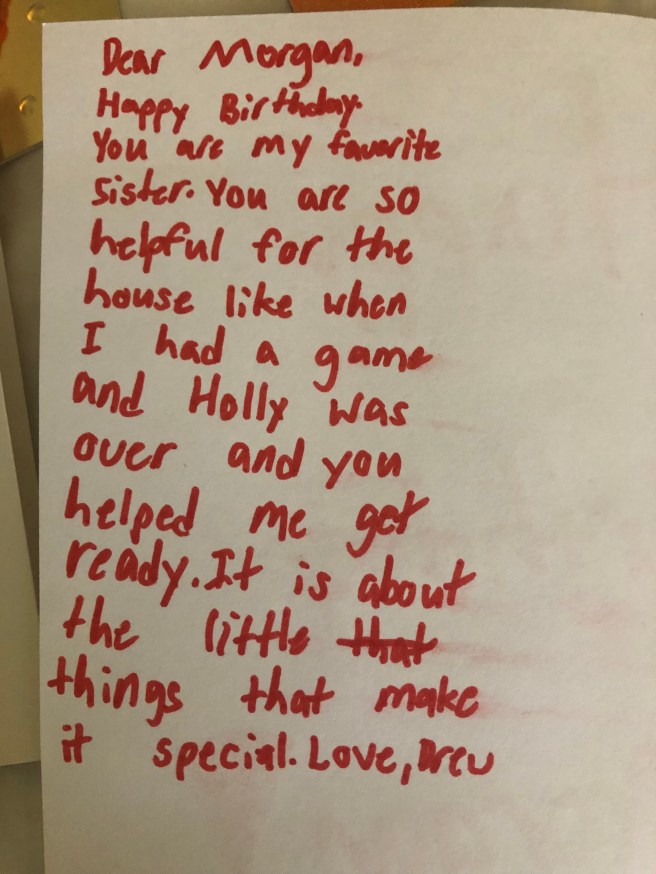 Dear Morgan,
Happy Birthday.
You are my favorite
sister. You are so
helpful for the
house like when
I had a game
and Holly was
over and you
helped me get
ready. It is about
the little that
things that make
it special. Love, Drew